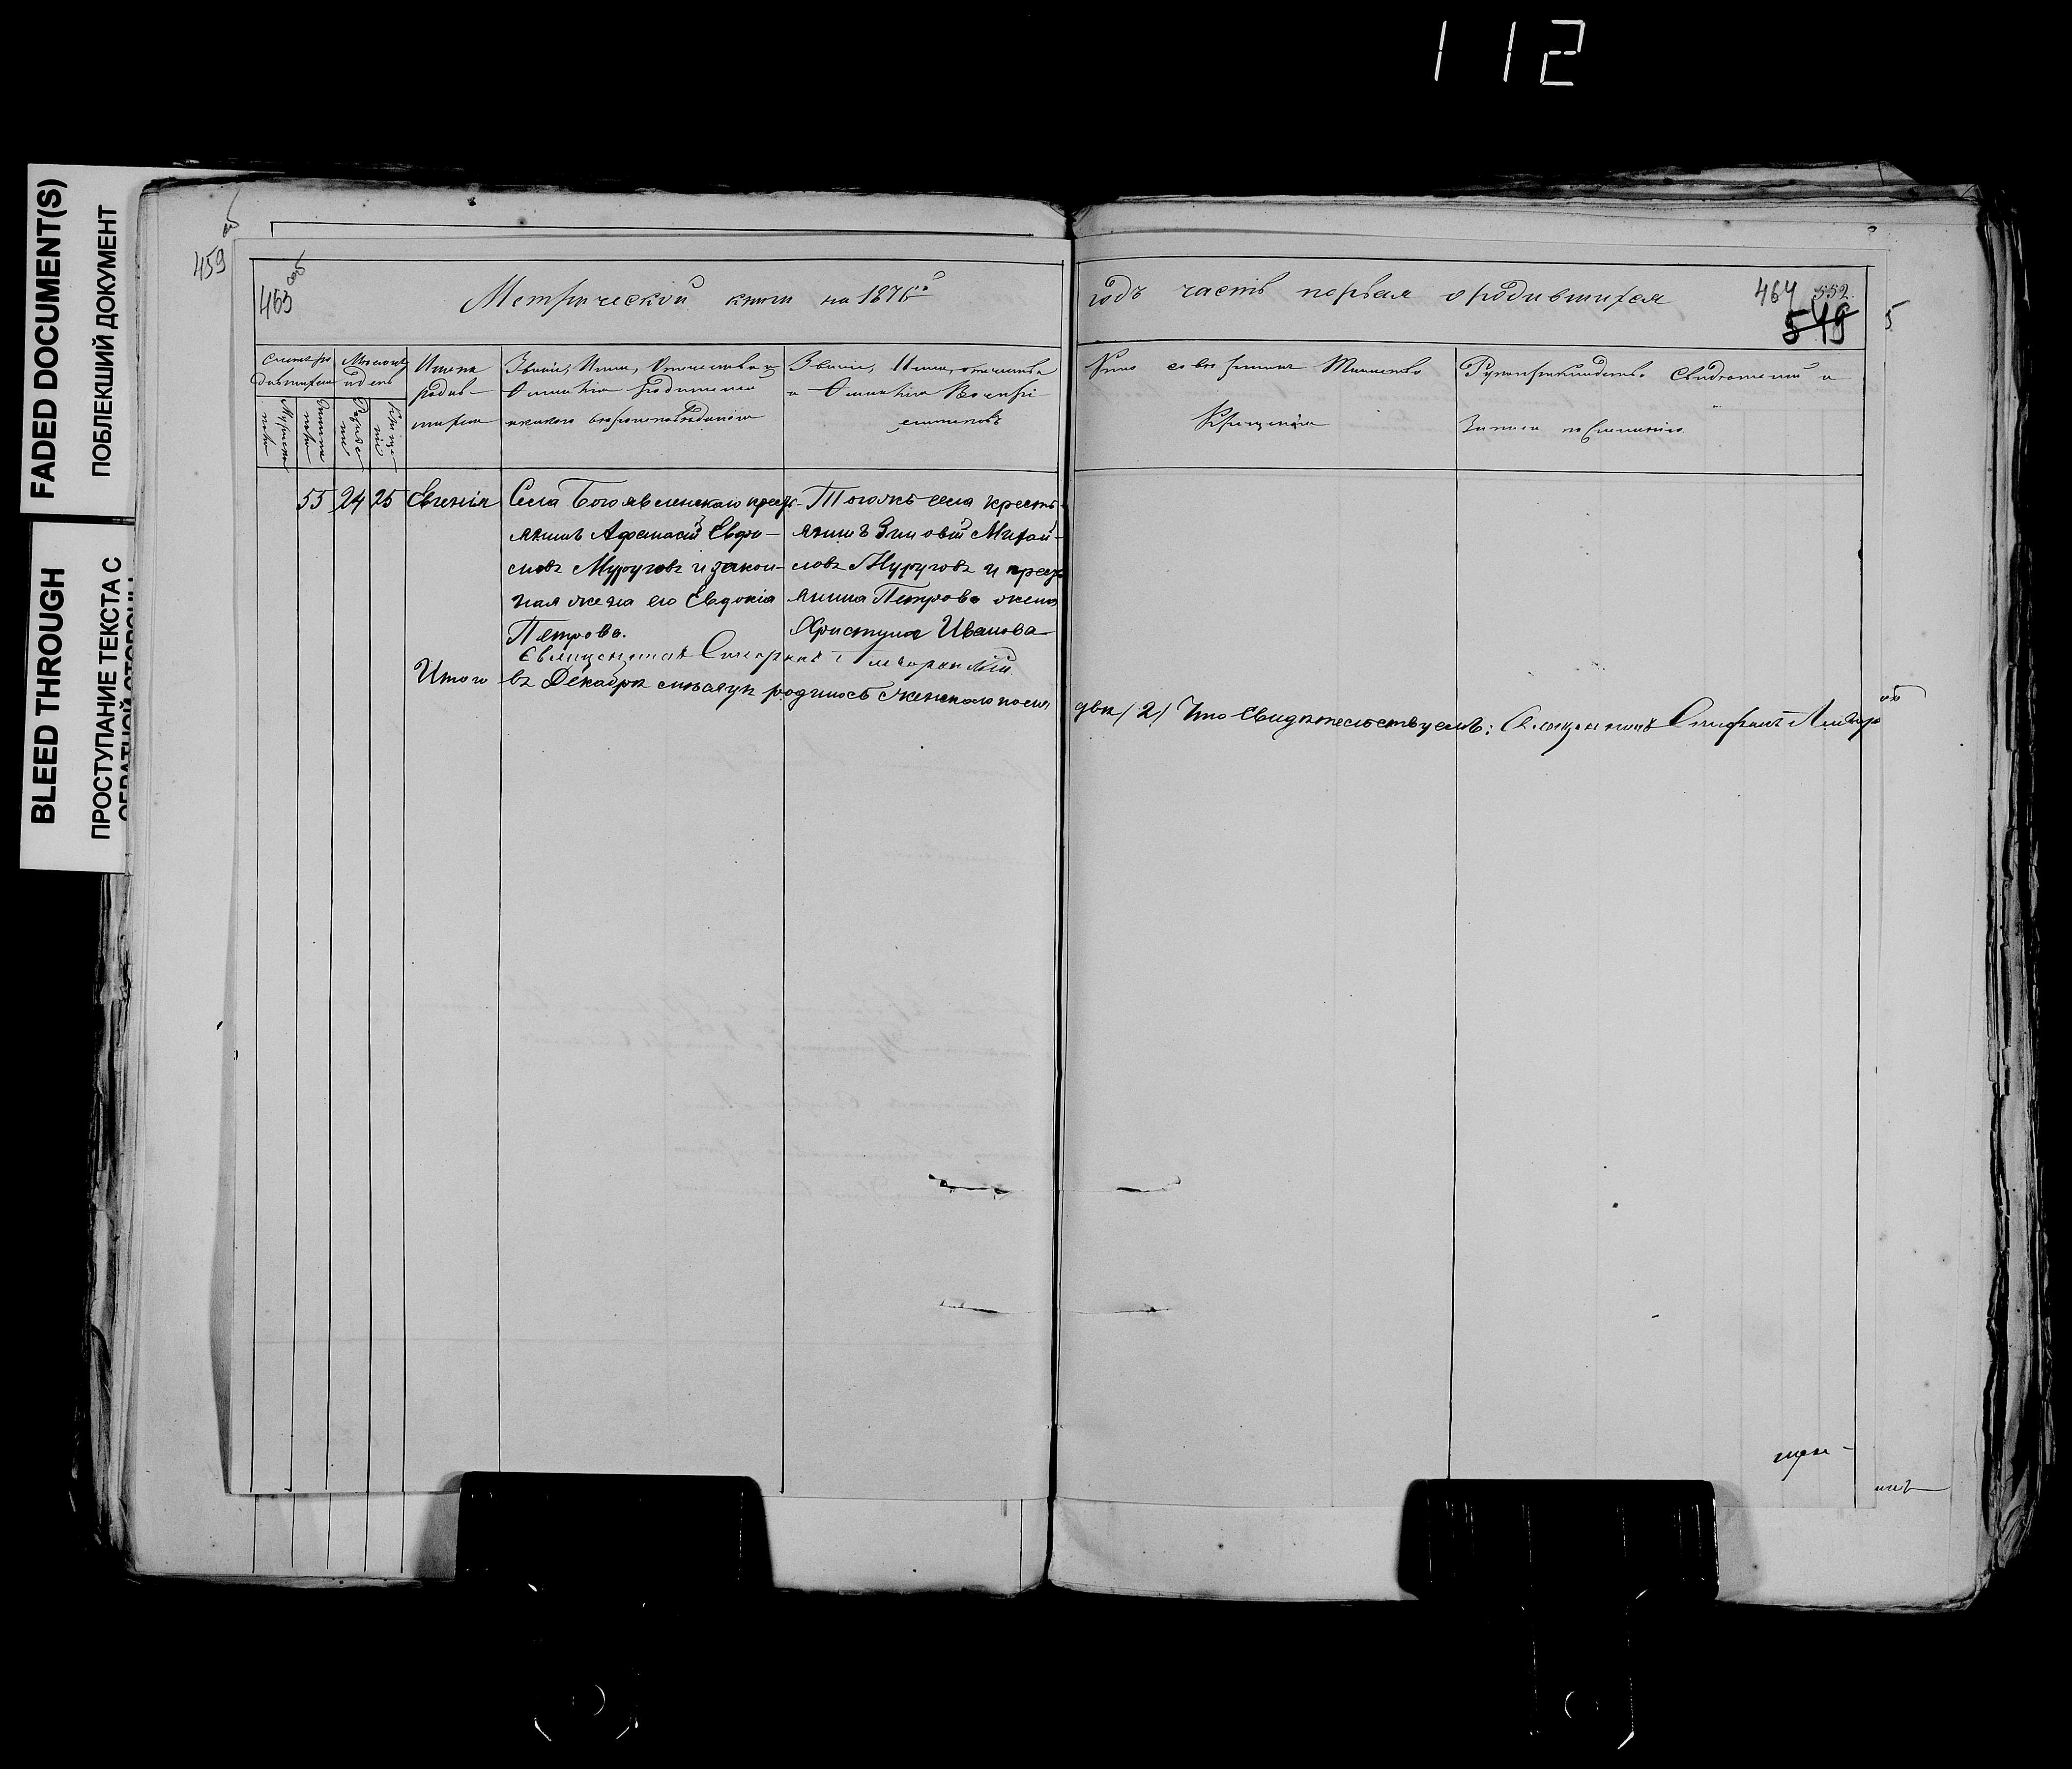 112
FADED DOCUMENT(S)
ПОБЛЕКШИЙ ДОКУМЕНТ
BLEED THROUGH
ПРОСТУПАНИЕ ТЕКСТА С
ОБРАТНОЙ СТОРОНЫ
459 об
463 об
Метрической книги на 1876й
годъ часть первая о родившихся
464 552
549
Счетъ ро
дившихся
Мужеска
пола
Женска
пола
Мѣсяцъ
и день
Рожде
нія
Креще
нія
Имена
родив-
шихся
Званіе, Имя, Отчество и
Фамилія родителей
и какого вѣроисповѣданія
Званіе, Имя, отчество
и Фамилія Воспрі-
емниковъ
Кто совершалъ Таинство
Крещенія
Рукоприкладство Свидѣтелей
записи по желанію
55 24 25 Евгенія
Села Богоявленскаго крест-
янинъ Афанасій Евфи-
мовъ Муругов и закон-
ная жена его Евдокія
Петрова.
Тогожъ села кресть-
янинъ Зиновій Михай-
ловъ Муруговъ и крест
янина Петрова жена
Христина Иванова
Священникъ
Итого въ Декабрѣ мѣсяцѣ родилось женскаго пола
двѣ (2) Что свидѣтельствуемъ: Священникъ Стефанъ